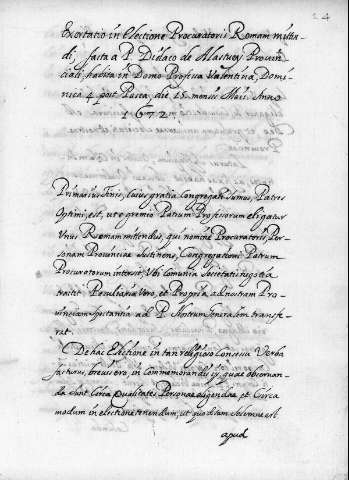 24
Exortatio in Electione Procuratoris Romam mitten-
di, facta a P. Didaco de Alastuey Provin-
ciali, habita in Domo Professa Valentina, Domi-
nica 4 post Pasca, die 15 mensis Maii Anno
1672.
Primarius finis, cuius gratia Congregati sumus, Patres
Optimi, est, ut e gremio Patrum Professorum eligatur
Unus Romam mittendus, qui nomine Procuratoris, Per-
sonam Provinciae sustinens, Congregationi Patrum
Procuratorum intersit. Ubi Comunia Societatis negotia
tractet. Peculiaria vero, et Propria ad nostram Pro-
vinciam spectantia ad P. Nostrum Generalem transfe-
rat.
De hac Electione in tan religioso Consessu Verba
facturus, brevis ero, in Commemorandis ijs, quae observan-
da sunt Circa qualitates Personae eligendae, et Circa
modum in electione tenendum, ut quod tam solemne est
apud